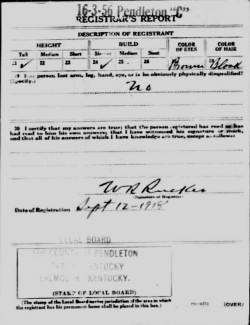 16-3-56 Pendleton "C"
REGISTRAR'S REPORT
DESCRIPTION OF REGISTRANT
HEIGHT BUILD COLOR OF EYES COLOR OF HAIR
Tall Medium Short Slender Medium Stout
21 ✓ 22 23 24 ✓ 25 26 27 Brown 28 Black
29 Has person lost arm, leg, hand, eye, or is he obviously physically disqualified?
(Specify.) No
30 I certify that my answers are true; that the person registered has read or has
had read to him his own answers; that I have witnessed his signature or mark,
and that all of his answers of which I have knowledge are true, except as follows:
(Signature of Registrar)
Date of Registration Sept 12-1918
LOCAL BOARD
PENDLETON
KENTUCKY
FALMOUTH KENTUCKY.
(STAMP OF LOCAL BOARD)
(The stamp of the Local Board having jurisdiction of the area in which
the registrant has his permanent home shall be placed in this box.)
(OVER)